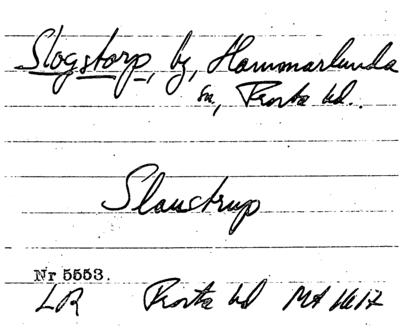 Slogstorp, by, Hammarlunda
sn, Frosta hd.
Slaustrup
Nr 5553.
LR Frosta hd MA 1617